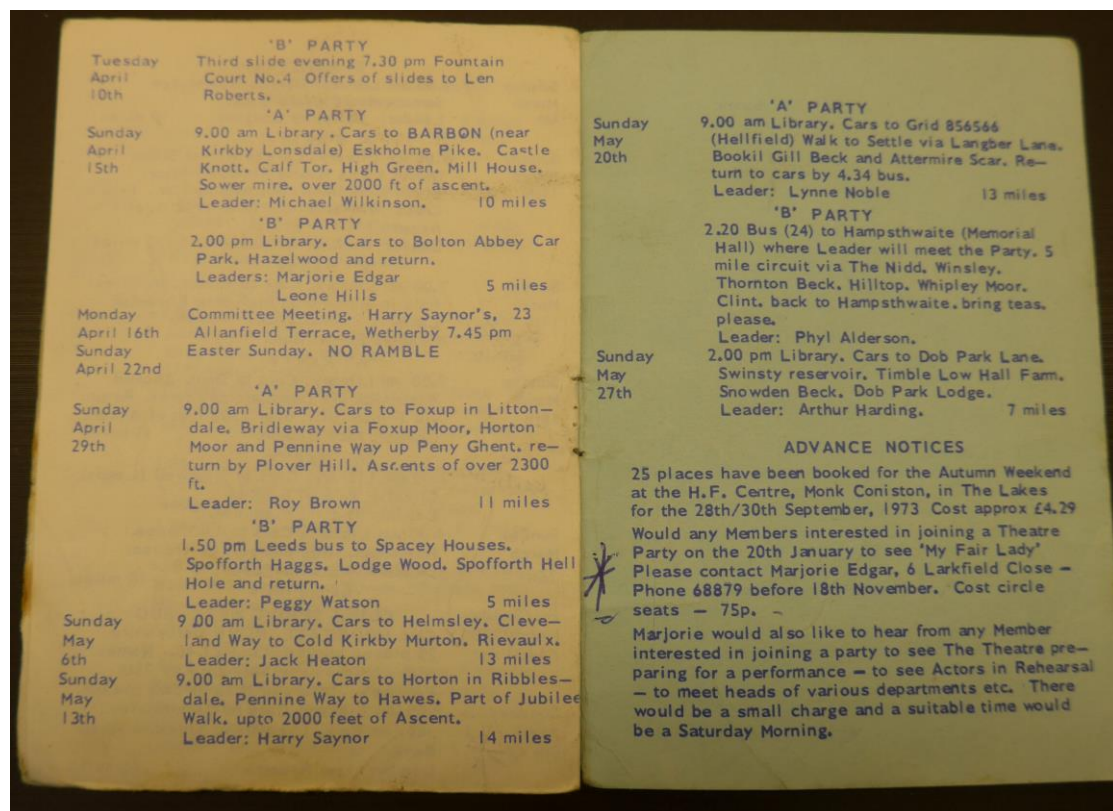 'B' PARTY
Tuesday Third slide evening 7.30 pm Fountain
April Court No.4 Offers of slides to Len
10th Roberts.
'A' PARTY
Sunday 9.00 am Library. Cars to BARBON (near
April Kirkby Lonsdale) Eskholme Pike. Castle
15th Knott. Calf Tor. High Green. Mill House.
Sower mire. over 2000 ft of ascent.
Leader: Michael Wilkinson. 10 miles
'B' PARTY
2.00 pm Library. Cars to Bolton Abbey Car
Park. Hazelwood and return.
Leaders: Marjorie Edgar
5 miles
Leone Hills
Monday Committee Meeting. Harry Saynor's, 23
April 16th Allanfield Terrace, Wetherby 7.45 pm
Sunday Easter Sunday. NO RAMBLE
April 22nd
'A' PARTY
Sunday 9.00 am Library. Cars to Foxup in Litton—
April dale. Bridleway via Foxup Moor, Horton
29th Moor and Pennine Way up Peny Ghent. re—
turn by Plover Hill. Ascents of over 2300
ft.
Leader: Roy Brown 11 miles
'B' PARTY
1.50 pm Leeds bus to Spacey Houses.
Spofforth Haggs. Lodge Wood. Spofforth Hell
Hole and return.
Leader: Peggy Watson 5 miles
Sunday 9.00 am Library. Cars to Helmsley. Cleve—
May land Way to Cold Kirkby Murton. Rievaulx.
6th Leader: Jack Heaton 13 miles
Sunday 9.00 am Library. Cars to Horton in Ribbles—
May dale. Pennine Way to Hawes. Part of Jubilee
13th Walk. upto 2000 feet of Ascent.
Leader: Harry Saynor 14 miles
'A' PARTY
Sunday 9.00 am Library. Cars to Grid 856566
May (Hellfield) Walk to Settle via Langber Lane.
20th Bookil Gill Beck and Attermire Scar. Re—
turn to cars by 4.34 bus.
Leader: Lynne Noble 13 miles
'B' PARTY
2.20 Bus (24) to Hampsthwaite (Memorial
Hall) where Leader will meet the Party. 5
mile circuit via The Nidd. Winsley.
Thornton Beck. Hilltop. Whipley Moor.
Clint. back to Hampsthwaite. bring teas.
please.
Leader: Phyl Alderson.
Sunday 2.00 pm Library. Cars to Dob Park Lane.
May Swinsty reservoir. Timble Low Hall Farm.
27th Snowden Beck. Dob Park Lodge.
Leader: Arthur Harding. 7 miles
ADVANCE NOTICES
25 places have been booked for the Autumn Weekend
at the H.F. Centre, Monk Coniston, in The Lakes
for the 28th/30th September, 1973 Cost approx £4.29
Would any Members interested in joining a Theatre
Party on the 20th January to see 'My Fair Lady'
Please contact Marjorie Edgar, 6 Larkfield Close —
Phone 68879 before 18th November. Cost circle
seats — 75p.
Marjorie would also like to hear from any Member
interested in joining a party to see The Theatre pre—
paring for a performance — to see Actors in Rehearsal
— to meet heads of various departments etc. There
would be a small charge and a suitable time would
be a Saturday Morning.